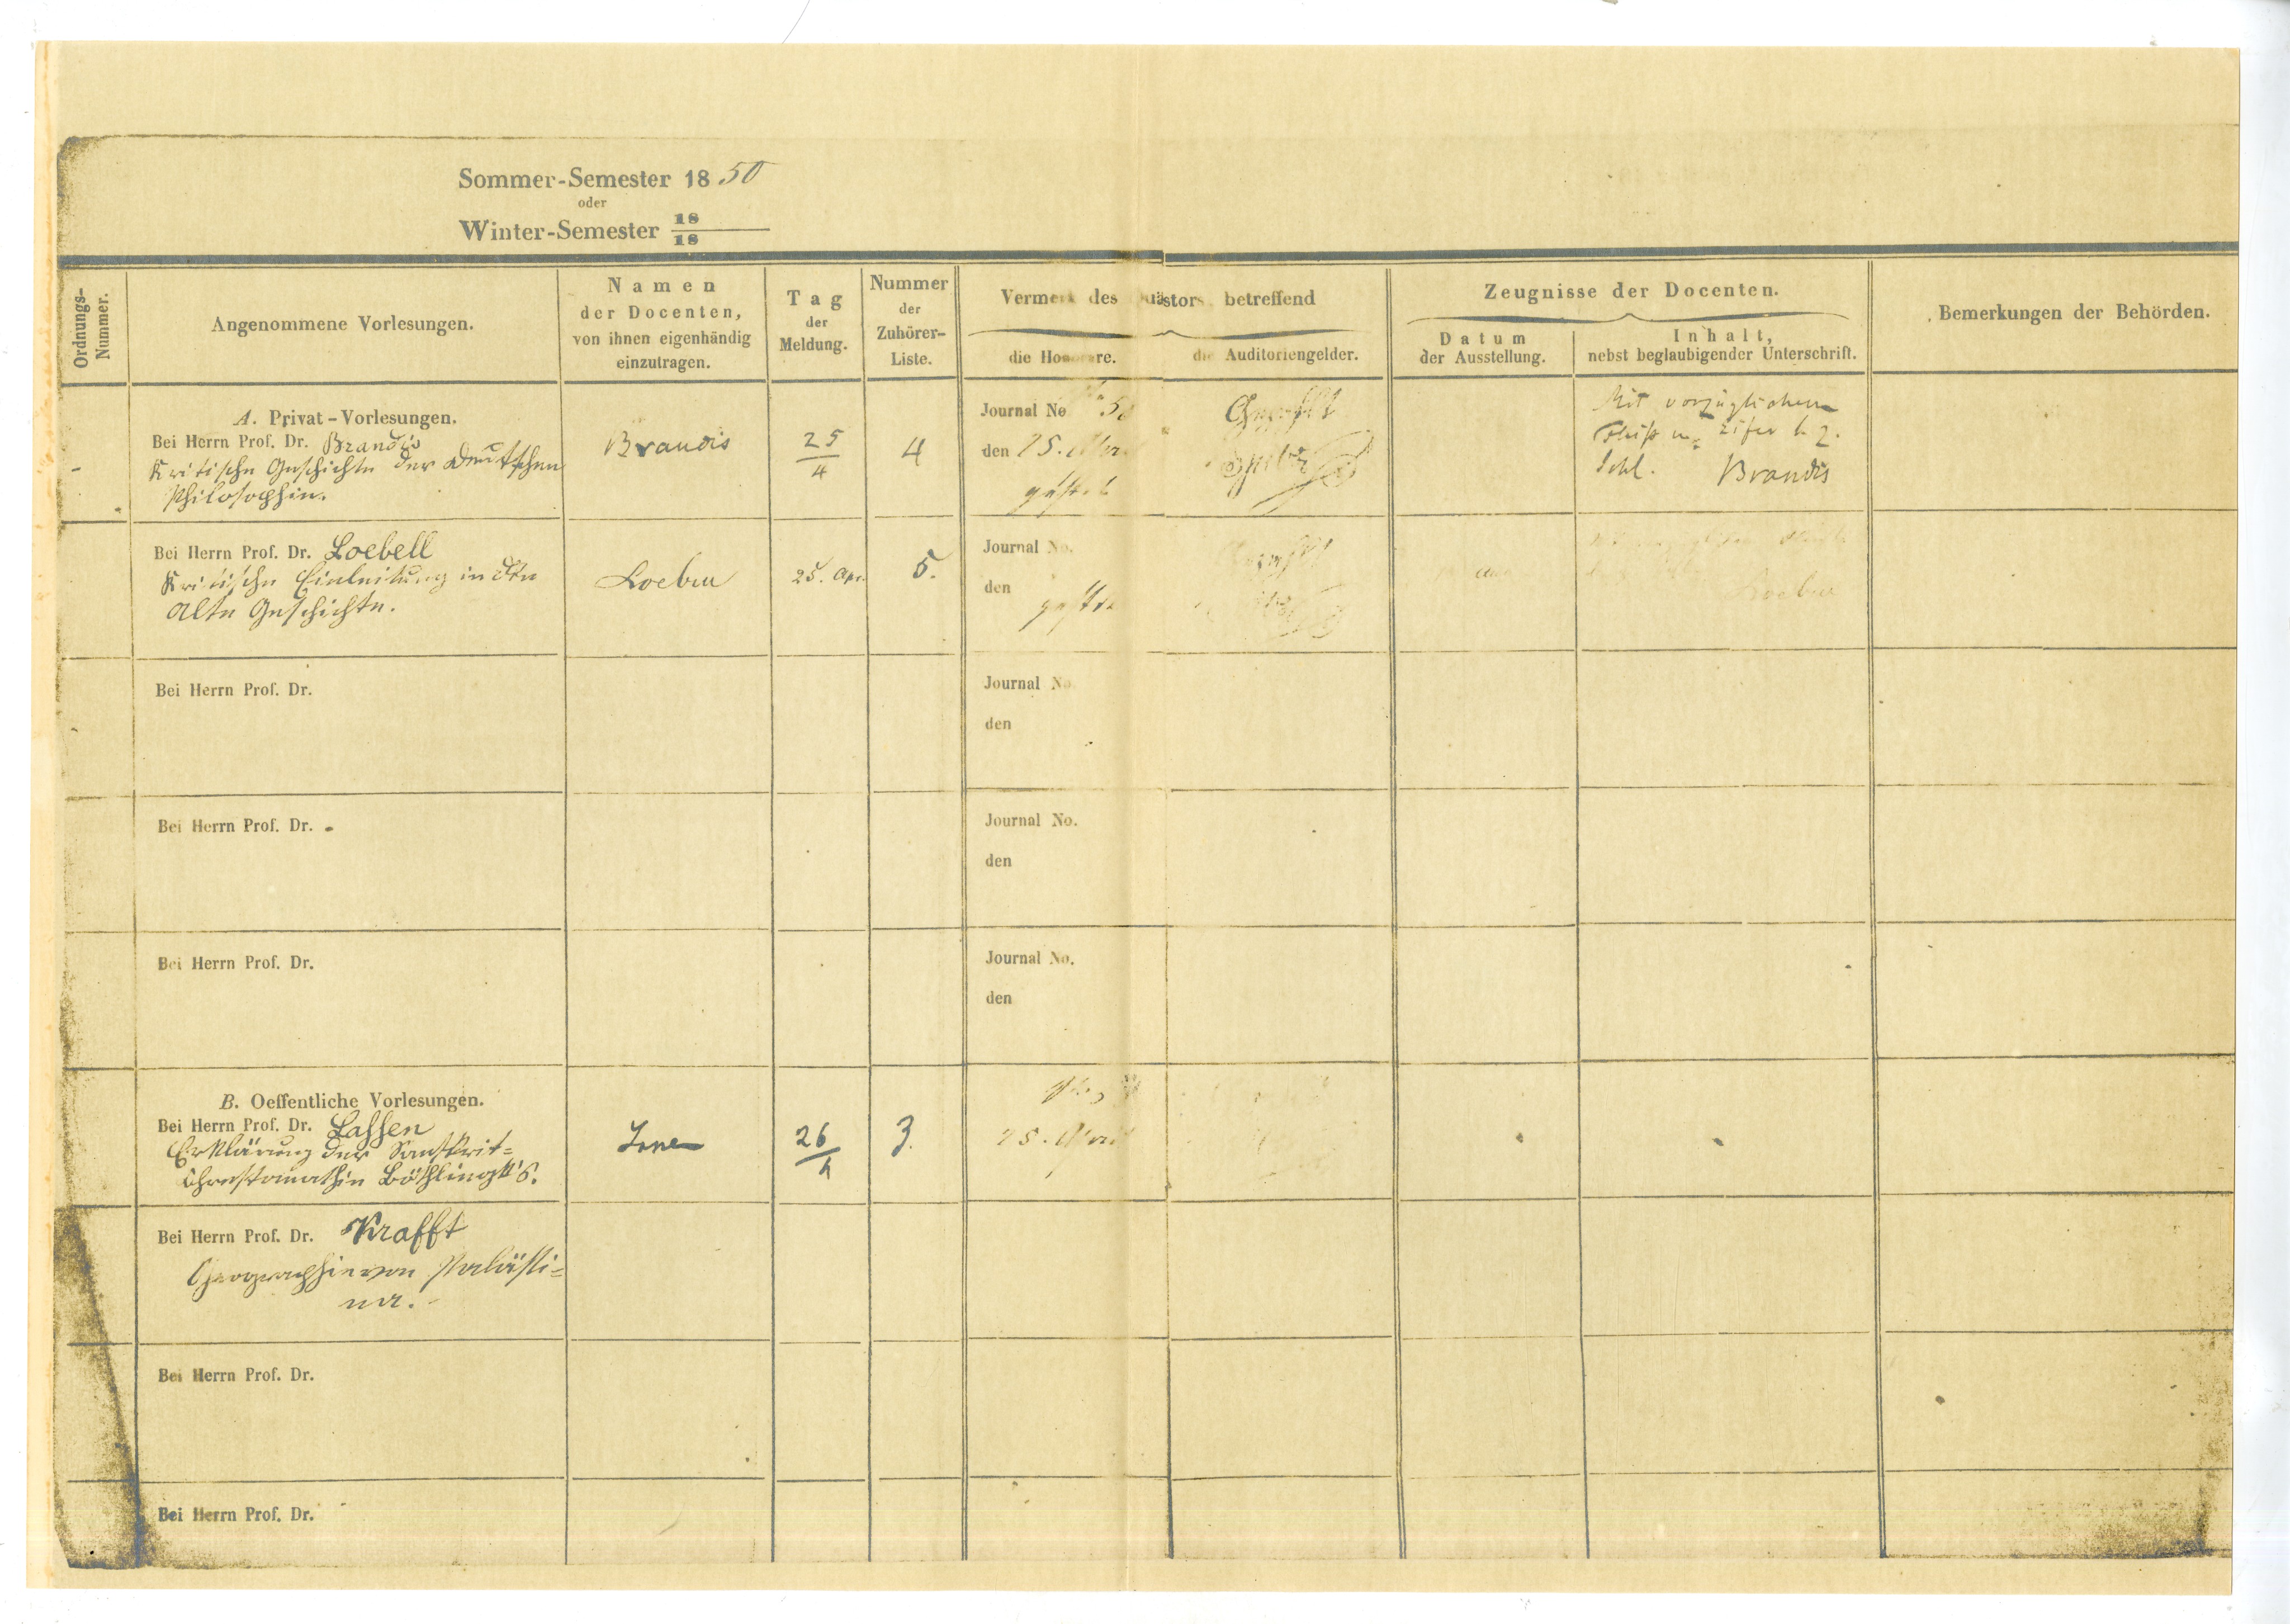 Sommer-Semester 18 50
oder
Winter-Semester 18
18
Ordnungs-
Nummer.
Angenommene Vorlesungen.
Namen
der Docenten,
von ihnen eigenhändig
einzutragen.
Tag
der
Meldung.
Nummer
der
Zuhörer-
Liste.
Vermerk des Quästors betreffend
die Honorare.
die Auditoriengelder.
Zeugnisse der Docenten.
Datum
der Ausstellung.
Inhalt,
nebst beglaubigender Unterschrift.
Bemerkungen der Behörden.
A. Privat-Vorlesungen.
Bei Herrn Prof. Dr. Brandis
Kritische Geschichte der deutschen
Philosophie.
Brandis
25
4
4
Journal No
den 25. April
Mit vorzüglichem
Fleiß u. Eifer
Brandis
Bei Herrn Prof. Dr. Loebell
Kritische Einleitung in die
alte Geschichte.
Loebell
25. Apr.
5.
Journal No.
den
Loebell
Bei Herrn Prof. Dr.
Journal No.
den
Bei Herrn Prof. Dr.
Journal No.
den
Bei Herrn Prof. Dr.
Journal No.
den
B. Oeffentliche Vorlesungen.
Bei Herrn Prof. Dr. Lassen
Erklärung der Sanskrit-
Chrestomathie Böthlingk's.
Lassen
26
4
3.
25. April
Bei Herrn Prof. Dr. Krafft
Geographie von Palästi-
na.
Bei Herrn Prof. Dr.
Bei Herrn Prof. Dr.